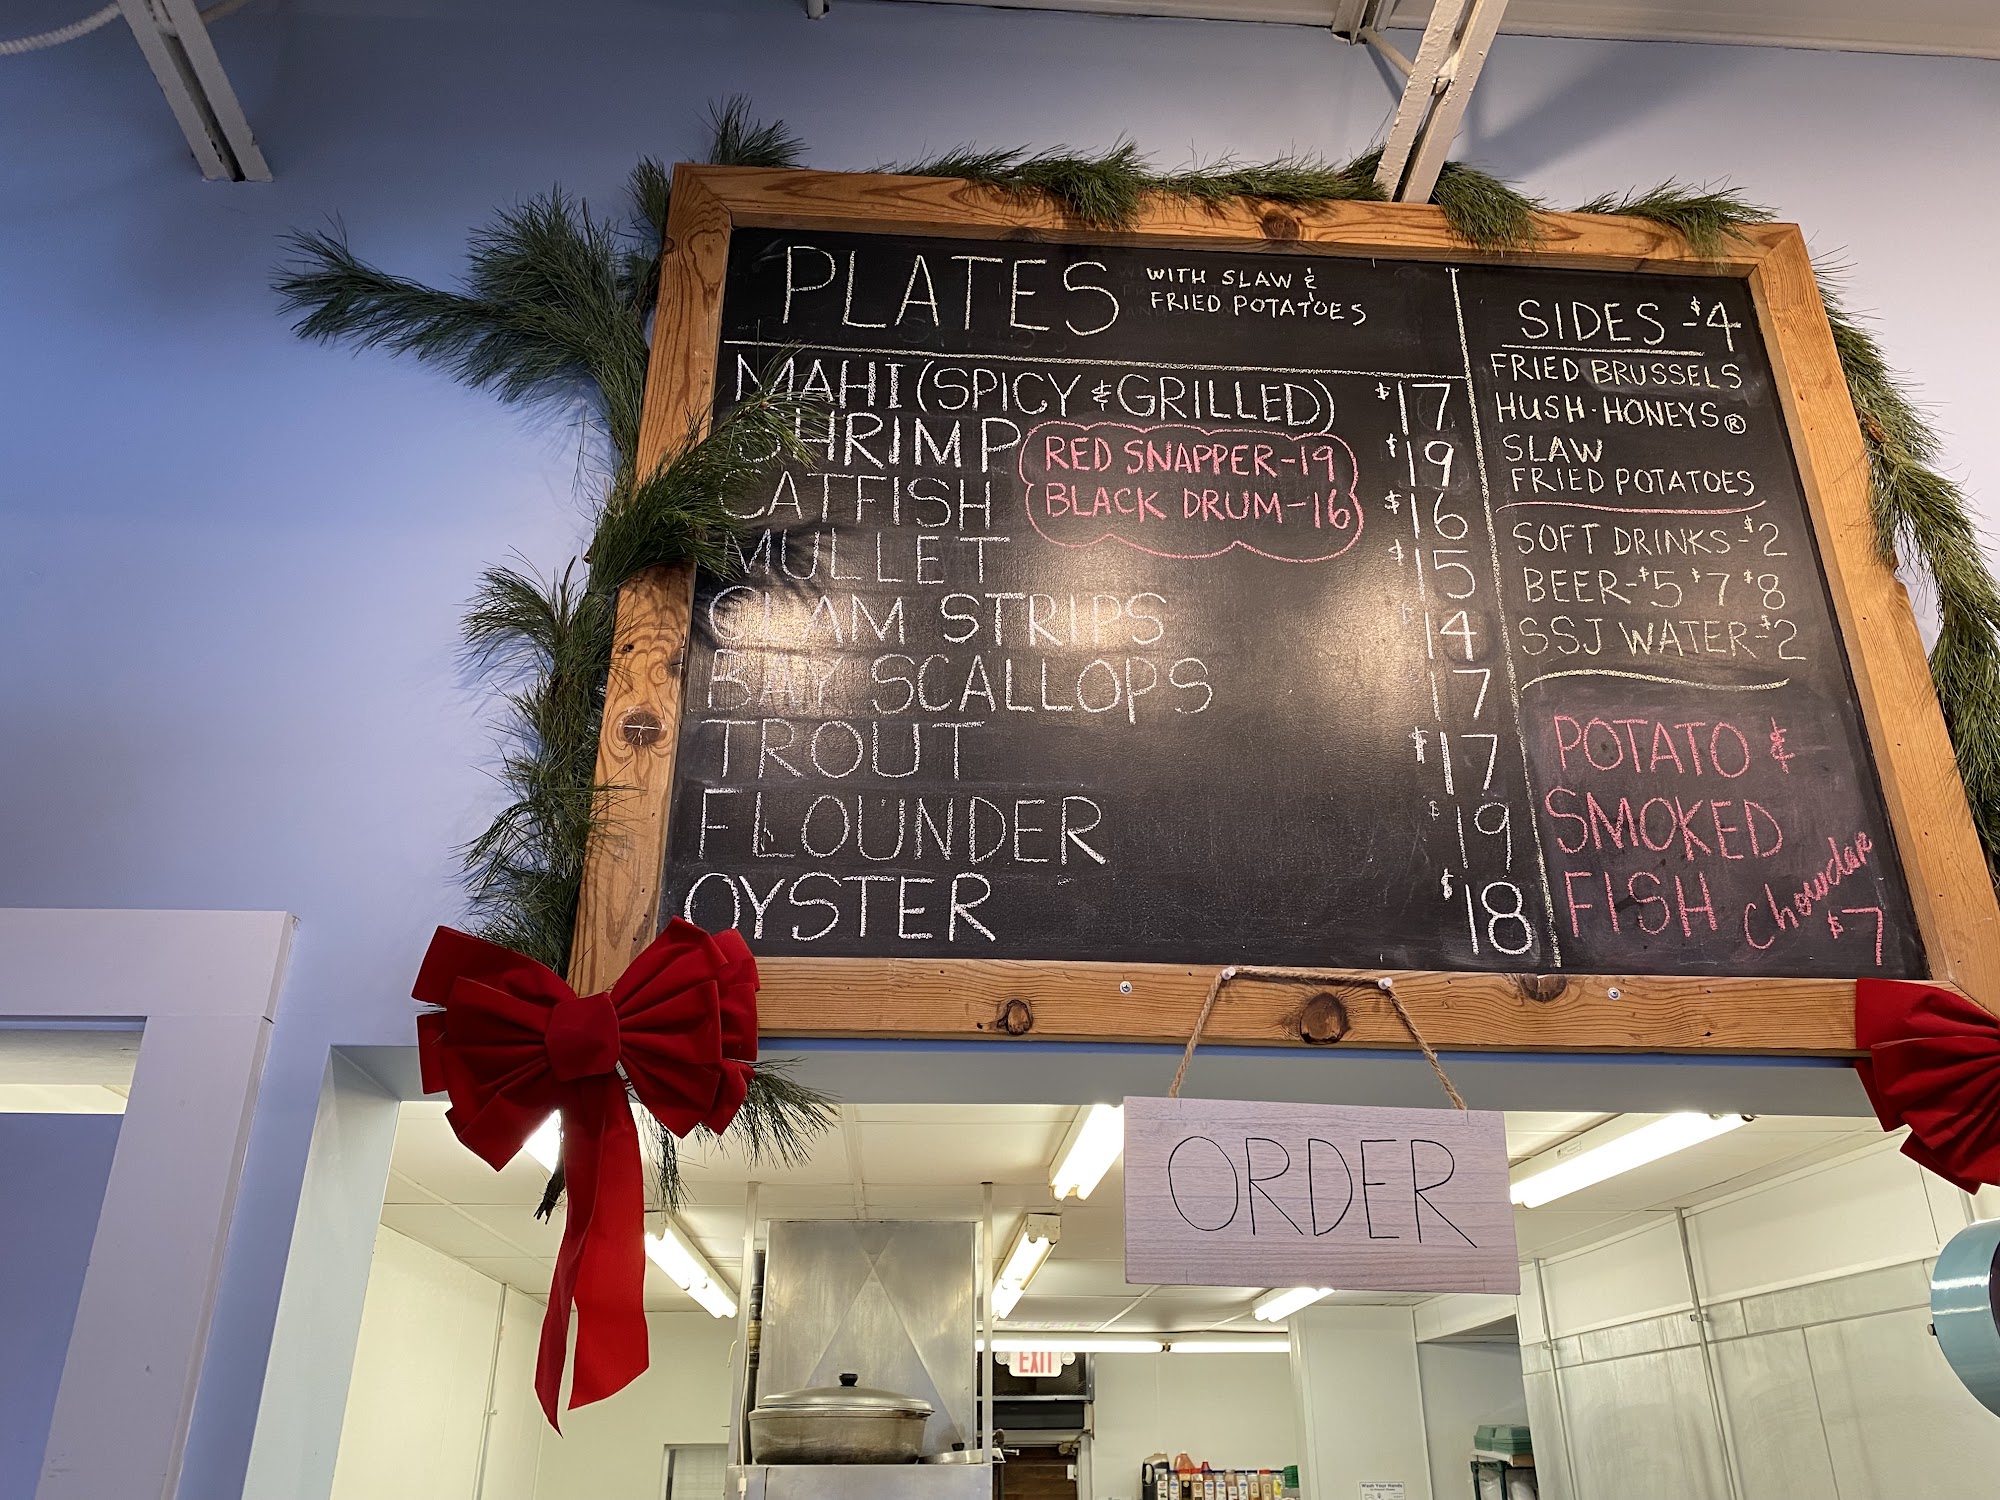 PLATES WITH SLAW &
FRIED POTATOES
MAHI (SPICY & GRILLED) $17
SHRIMP $19
RED SNAPPER-19
CATFISH $16
BLACK DRUM-16
MULLET $15
CLAM STRIPS $14
BAY SCALLOPS 17
TROUT $17
FLOUNDER $19
OYSTER $18
SIDES -$4
FRIED BRUSSELS
HUSH·HONEYS®
SLAW
FRIED POTATOES
SOFT DRINKS-$2
BEER-$5 $7 $8
SSJ WATER-$2
POTATO &
SMOKED
FISH Chowder
$7
ORDER
EXIT
Wash Your Hands